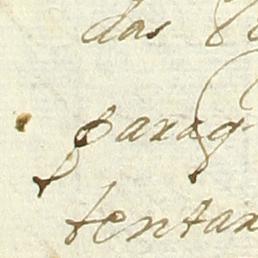 das
paraq
tentar